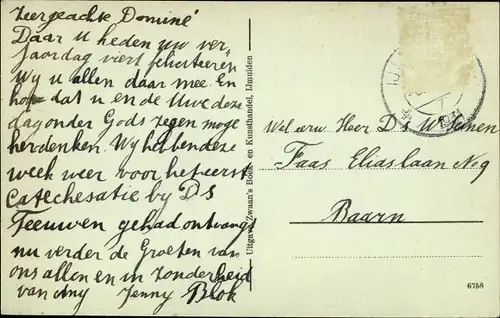 Zeergeachte Dominé
Daar u heden uw ver-
jaardag viert feliciteeren
Wy u allen daar mee. En
dat u en de Uwe deze
dag onder Gods zegen moge
herdenken. Wy hebben deze
week weer voor het eerst
Catechesatie by DS
Teeuwen gehad ontvangt
nu verder de Groeten van
ons allen en in zonderheid
van my Jenny Blok
Uitgave Zwaan's Boek en Kunsthandel, IJmuiden
Wel eerw Heer Ds
Faas Eliaslaan No 9
Baarn
6758